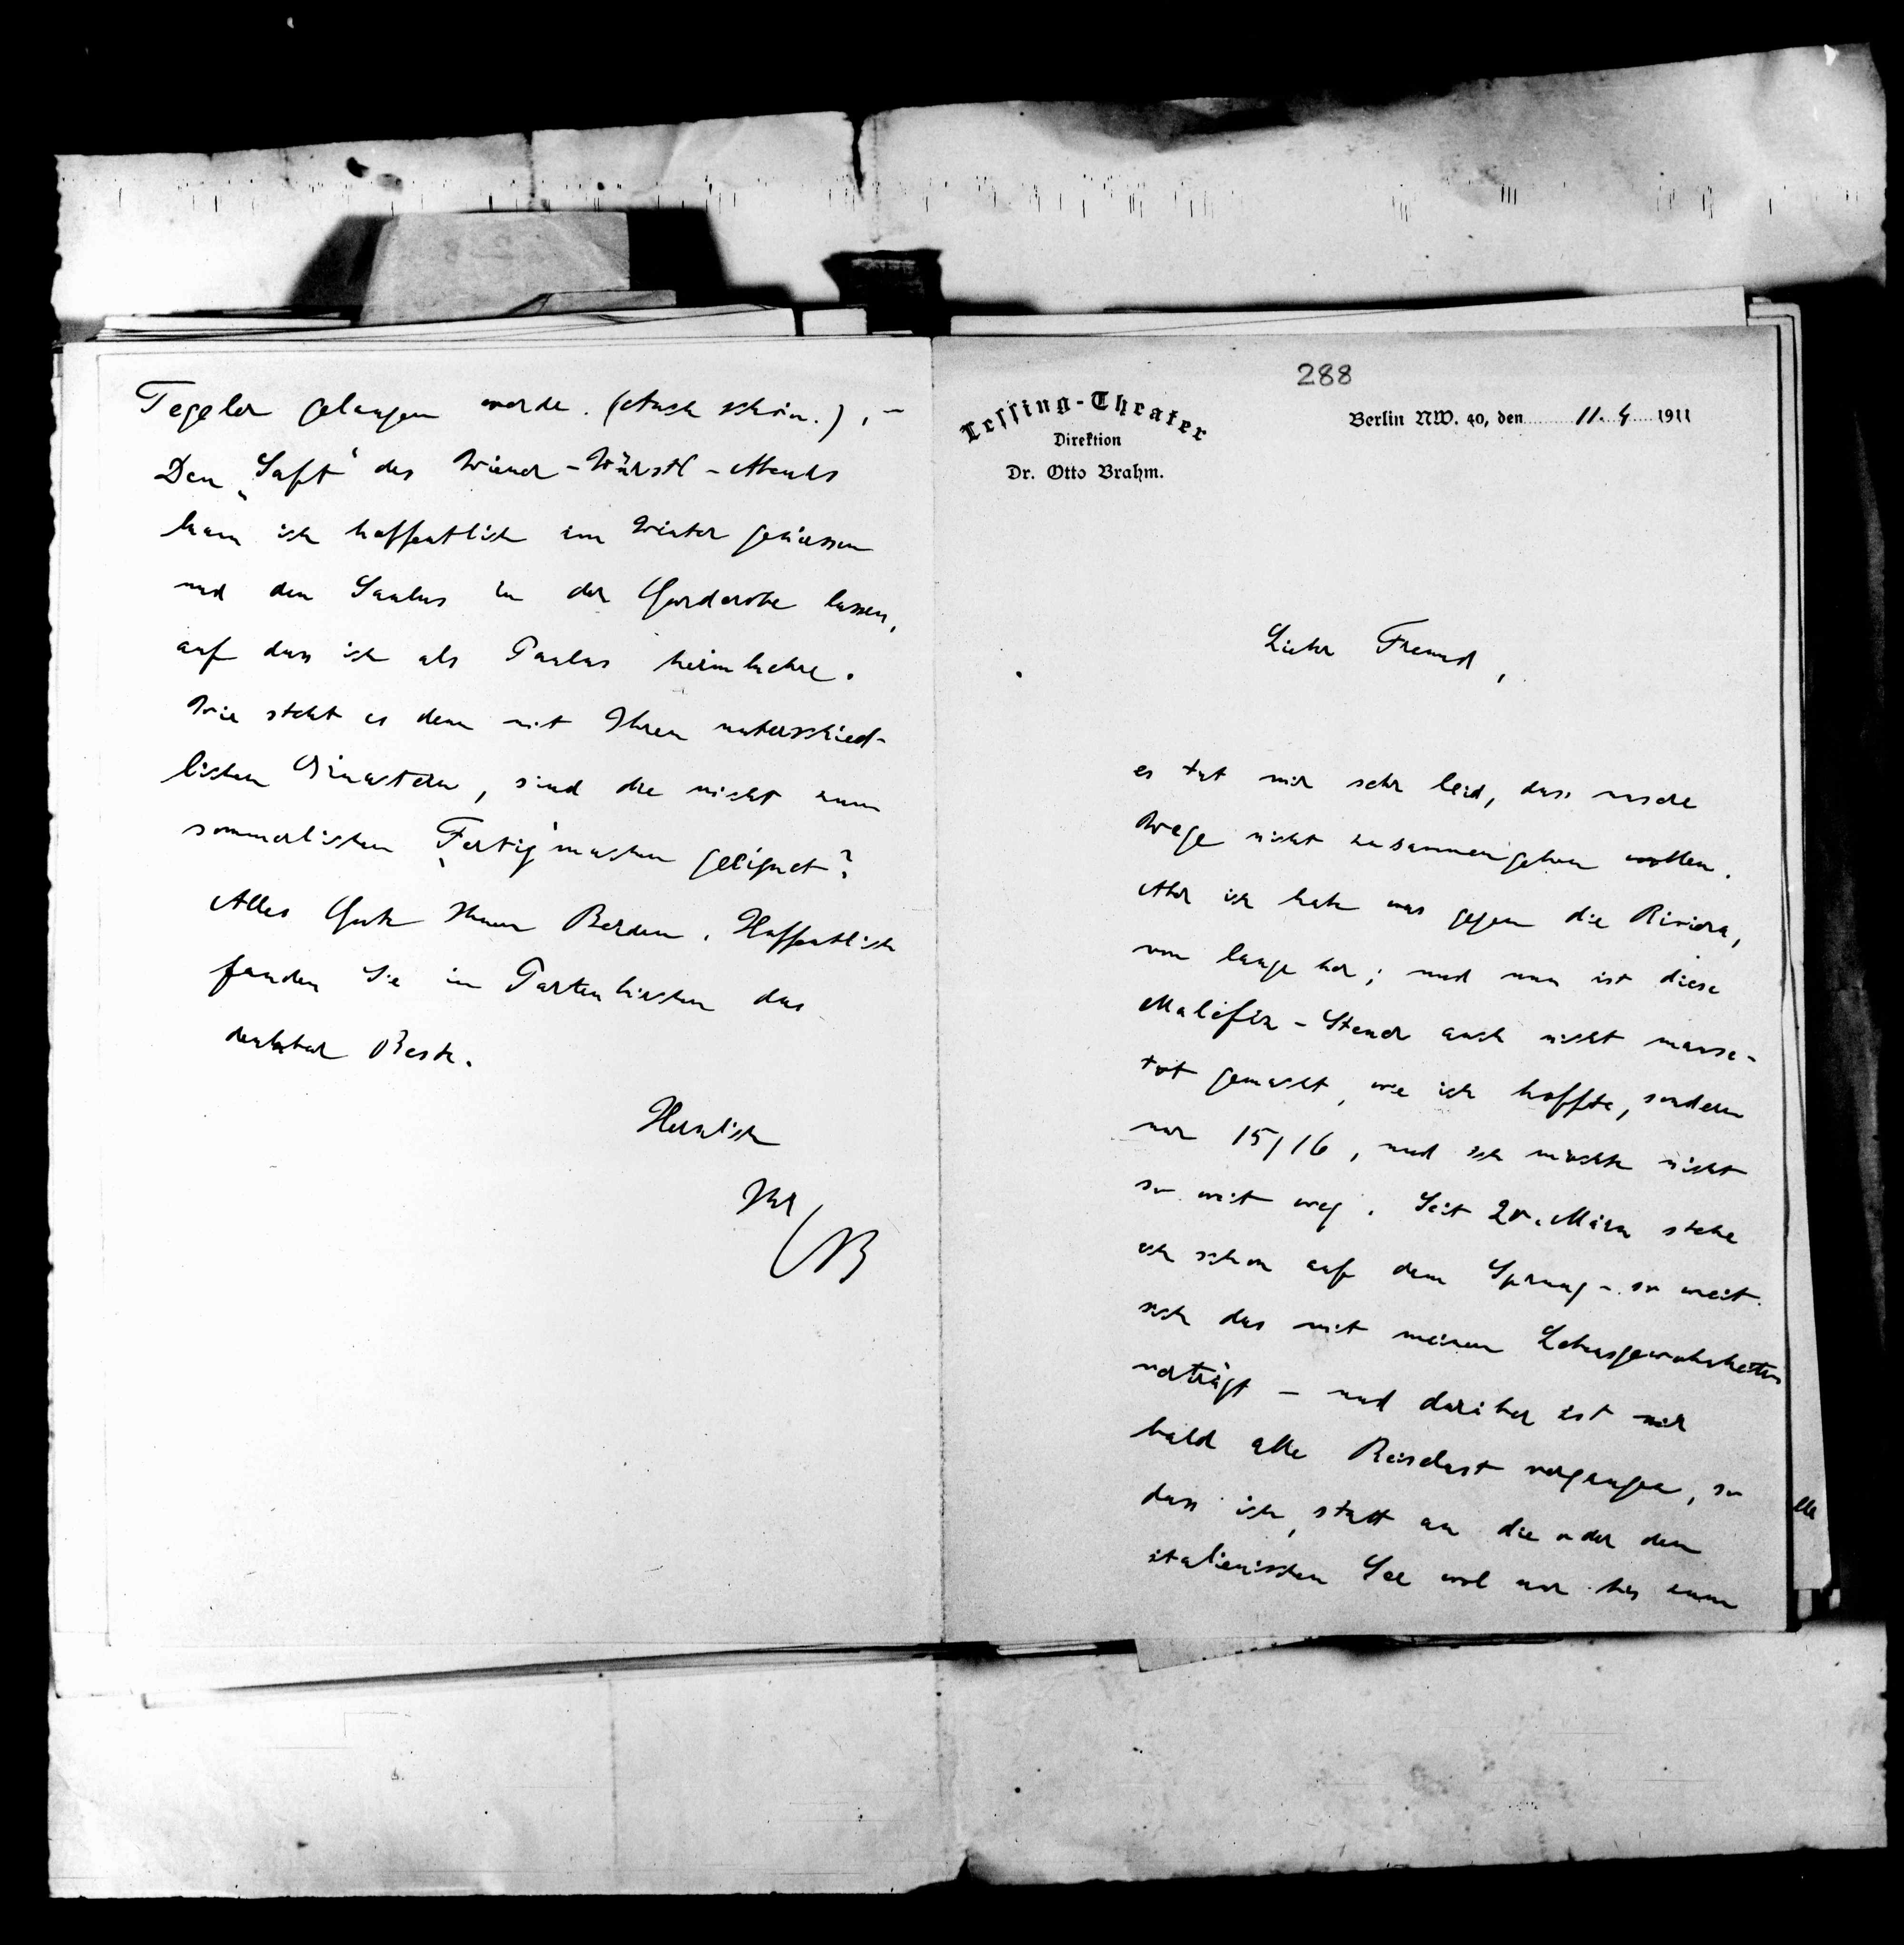 288
Lessing-Theater
Direktion
Dr. Otto Brahm.
Berlin NW. 40, den 11. 4 1911
Lieber Freund,
es tut mir sehr leid, dass unsere
Wege nicht zusammengehen wollen.
Aber ich habe was gegen die Riviera,
von lange her; und nun ist diese
Malefiz-Steuer auch nicht mause-
tot gemacht, wie ich hoffte, sondern
nur 15/16, und ich möchte nicht
so weit weg. Seit 20. März stehe
ich schon auf dem Sprung – so weit
sich das mit meinen Lebensgewohnheiten
verträgt – und darüber ist mir
bald alle Reiselust vergangen, so
dass ich, statt an die oder den
italienischen See wol nur bis zum
Tegeler gelangen werde. (Auch schön.), –
Den „Saft“ des Wiener-Würstl-Abends
kann ich hoffentlich im Winter geniessen
und den Saulus in der Garderobe lassen,
auf dass ich als Paulus heimkehre.
Wie steht es denn mit Ihren unterschied-
lichen Einaktern, sind die nicht zum
sommerlichen „Fertig“machen geeignet?
Alles Gute Ihnen Beiden. Hoffentlich
fanden Sie in Partenkirchen das
denkbar Beste.
Herzlich
Ihr
OB